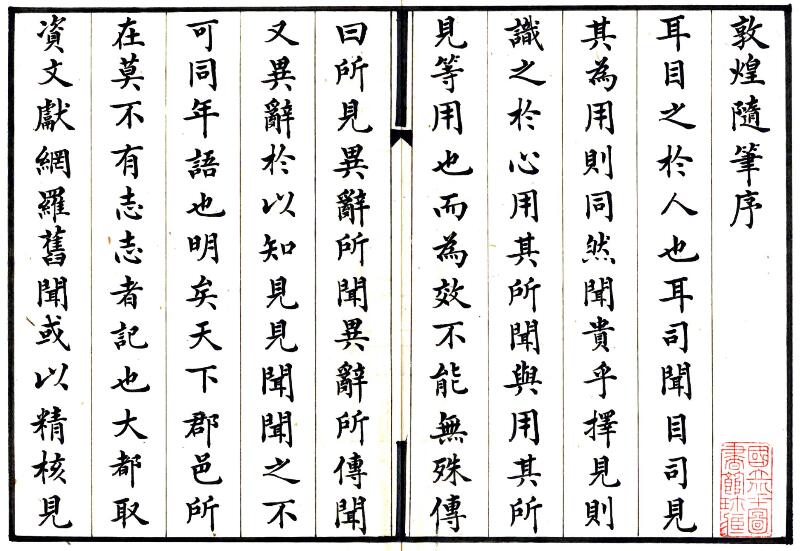 敦煌隨筆序
耳目之於人也耳司聞目司見
其為用則同然聞貴乎擇見則
識之於心用其所聞與用其所
見等用也而為效不能無殊傳
曰所見異辭所聞異辭所傳聞
又異辭於以知見見聞聞之不
可同年語也明矣天下郡邑所
在莫不有志志者記也大都取
資文獻網羅舊聞或以精核見
國立北平圖書館珍藏